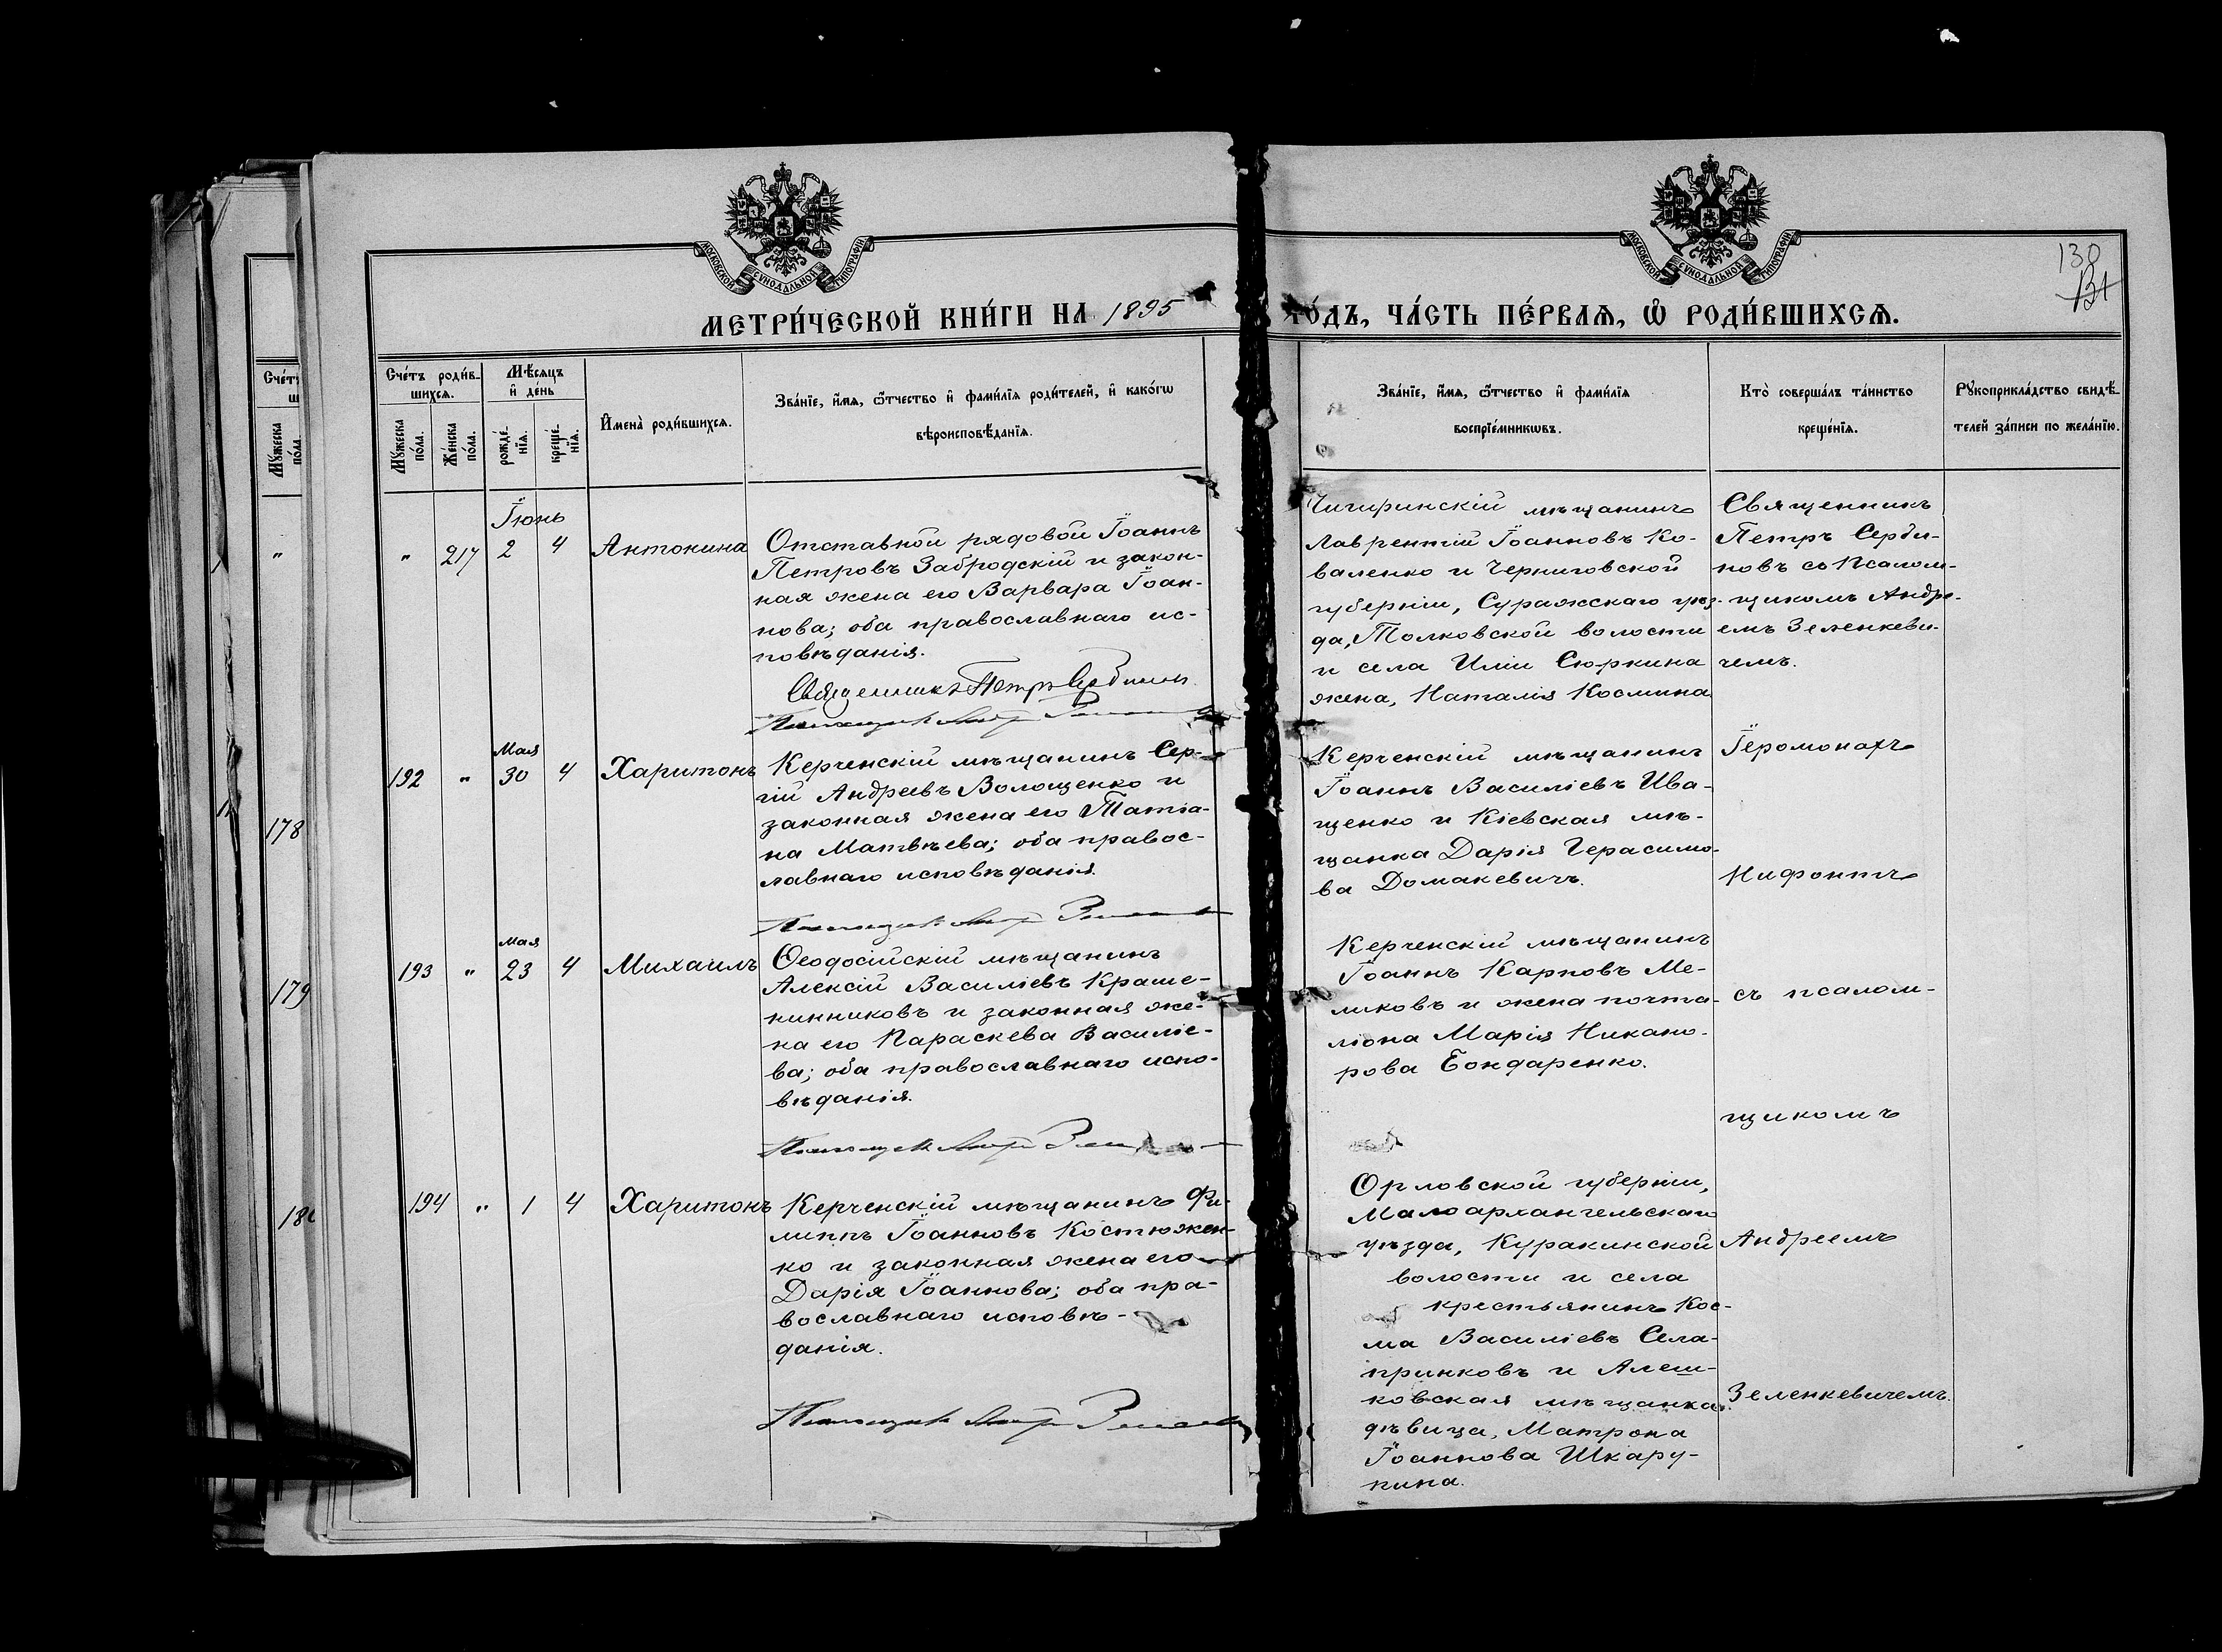 МОСКОВСКОЙ СѴНОДАЛЬНОЙ ТИПОГРАФІИ
МОСКОВСКОЙ СѴНОДАЛЬНОЙ ТИПОГРАФІИ
130
МЕТРИ́ЧЕСКОЙ КНИ́ГИ НА 1895
ГО́ДЪ, ЧА́СТЬ ПЕ́РВАѦ, Ѽ РОДИ́ВШИХСѦ.
Сче́тъ роди́в-
шихсѧ.
Мѣ́сѧцъ
и҆ де́нь
Мꙋ́жеска
по́ла.
Же́нска
по́ла.
рожде́-
нїѧ.
креще́-
нїѧ.
И҆мена̀ роди́вшихсѧ.
Зва́нїе, и҆́мѧ, ѻ҆́тчество и҆ фами́лїѧ роди́телей, и҆ како́гѡ
вѣроисповѣ́данїѧ.
Зва́нїе, и҆́мѧ, ѻ҆́тчество и҆ фами́лїѧ
воспрїе́мникѡвъ.
Кто̀ соверша́лъ та́инство
креще́нїѧ.
Рꙋкоприкла́дство свидѣ́-
телей за́писи по жела́нїю.
Сче́т
Мꙋ́жеска
по́ла.
"
178
179
180
Іюнь
" 217 2 4 Антонина
Отставной рядовой Іоаннъ
Петровъ Забродскій и закон-
ная жена его Варвара Іоан-
нова; оба православнаго ис-
повѣданія.
Священникъ Петръ Сербиновъ
Псаломщикъ Андр. Зеленкевичъ
Чигиринскій мѣщанинъ
Лаврентій Іоанновъ Ко-
валенко и Черниговской
губерніи, Суражскаго уѣз-
да, Толковской волости
и села Иліи Сюркина
жена, Наталія Космина
Священникъ
Петръ Серби-
новъ со псалом-
щикомъ Андре-
емъ Зеленкеви-
чемъ.
Мая
192 " 30 4 Харитонъ
Керченскій мѣщанинъ Сер-
гій Андреевъ Волощенко и
законная жена его Татіа-
на Матвѣева; оба правос-
лавнаго исповѣданія.
Псаломщикъ Андр. Зеленкевичъ
Керченскій мѣщанинъ
Іоаннъ Василіевъ Ива-
щенко и Кіевская мѣ-
щанка Дарія Герасимо-
ва Домакевичъ.
Іеромонахъ
Нифонтъ
Мая
193 " 23 4 Михаилъ
Ѳеодосійскій мѣщанинъ
Алексій Василіевъ Краше-
нинниковъ и законная же-
на его Параскева Василіе-
ва; оба православнаго испо-
вѣданія.
Псаломщикъ Андр. Зеленкевичъ
Керченскій мѣщанинъ
Іоаннъ Карповъ Ме-
ликовъ и жена почта-
ліона Марія Никано-
рова Бондаренко.
съ псалом-
щикомъ
194 " 1 4 Харитонъ
Керченскій мѣщанинъ Фи-
липпъ Іоанновъ Костюжен-
ко и законная жена его
Дарія Іоаннова; оба пра-
вославнаго исповѣ-
данія.
Псаломщикъ Андр. Зеленкевичъ
Орловской губерніи,
Малоархангельскаго
уѣзда, Куракинской
волости и села
крестьянинъ Кос-
ма Василіевъ Села-
принковъ и Алеш-
ковская мѣщанка,
дѣвица, Матрона
Іоаннова Шкару-
пина.
Андреемъ
Зеленкевичемъ.